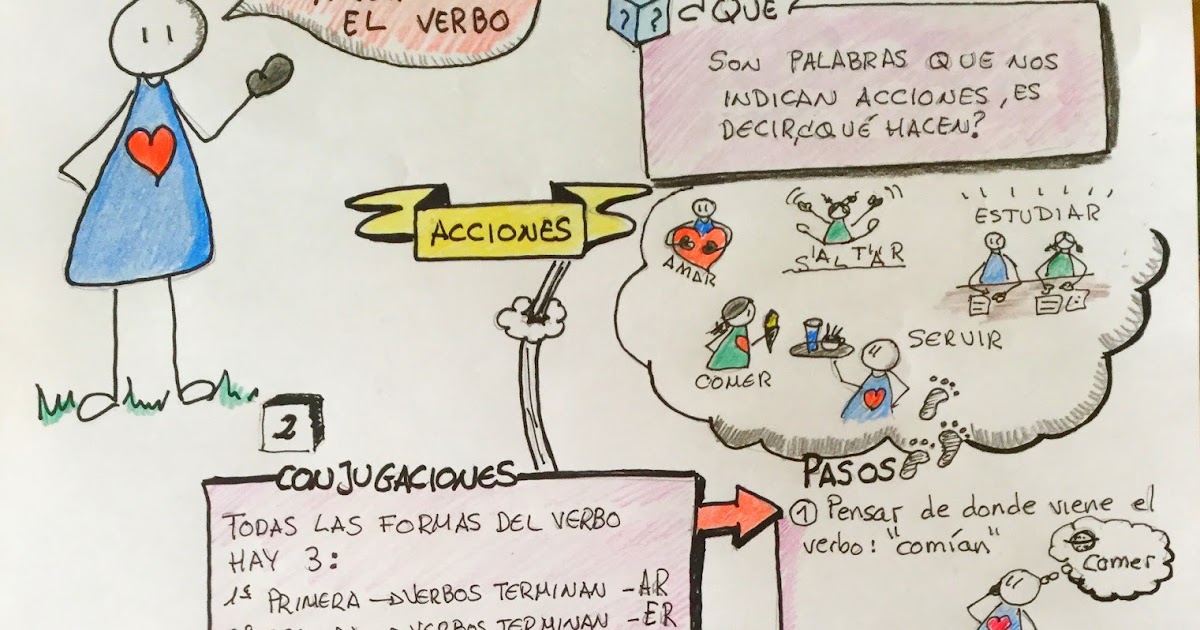 EL VERBO
¿QUÉ
SON PALABRAS QUE NOS
INDICAN ACCIONES, ES
DECIR,¿QUÉ HACEN?
ACCIONES
AMAR
SALTAR
ESTUDIAR
COMER
SERVIR
2
CONJUGACIONES
TODAS LAS FORMAS DEL VERBO
HAY 3:
1ª PRIMERA → VERBOS TERMINAN -AR
VERBOS TERMINAN -ER
PASOS
1 Pensar de donde viene el
verbo: "comían"
comer